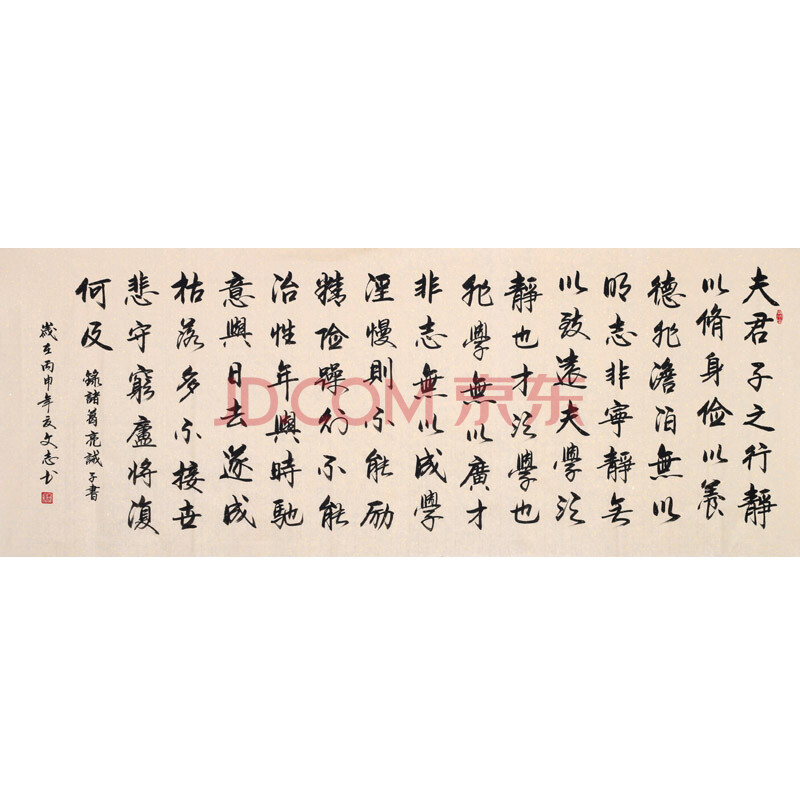 夫君子之行靜
以脩身儉以養
德非澹泊無以
明志非寧靜無
以致遠夫學須
靜也才須學也
非學無以廣才
非志無以成學
淫慢則不能勵
精險躁則不能
冶性年與時馳
意與日去遂成
枯落多不接世
悲守窮廬將復
何及
錄諸葛亮誡子書
歲在丙申年夏文志书
JD.COM 京东